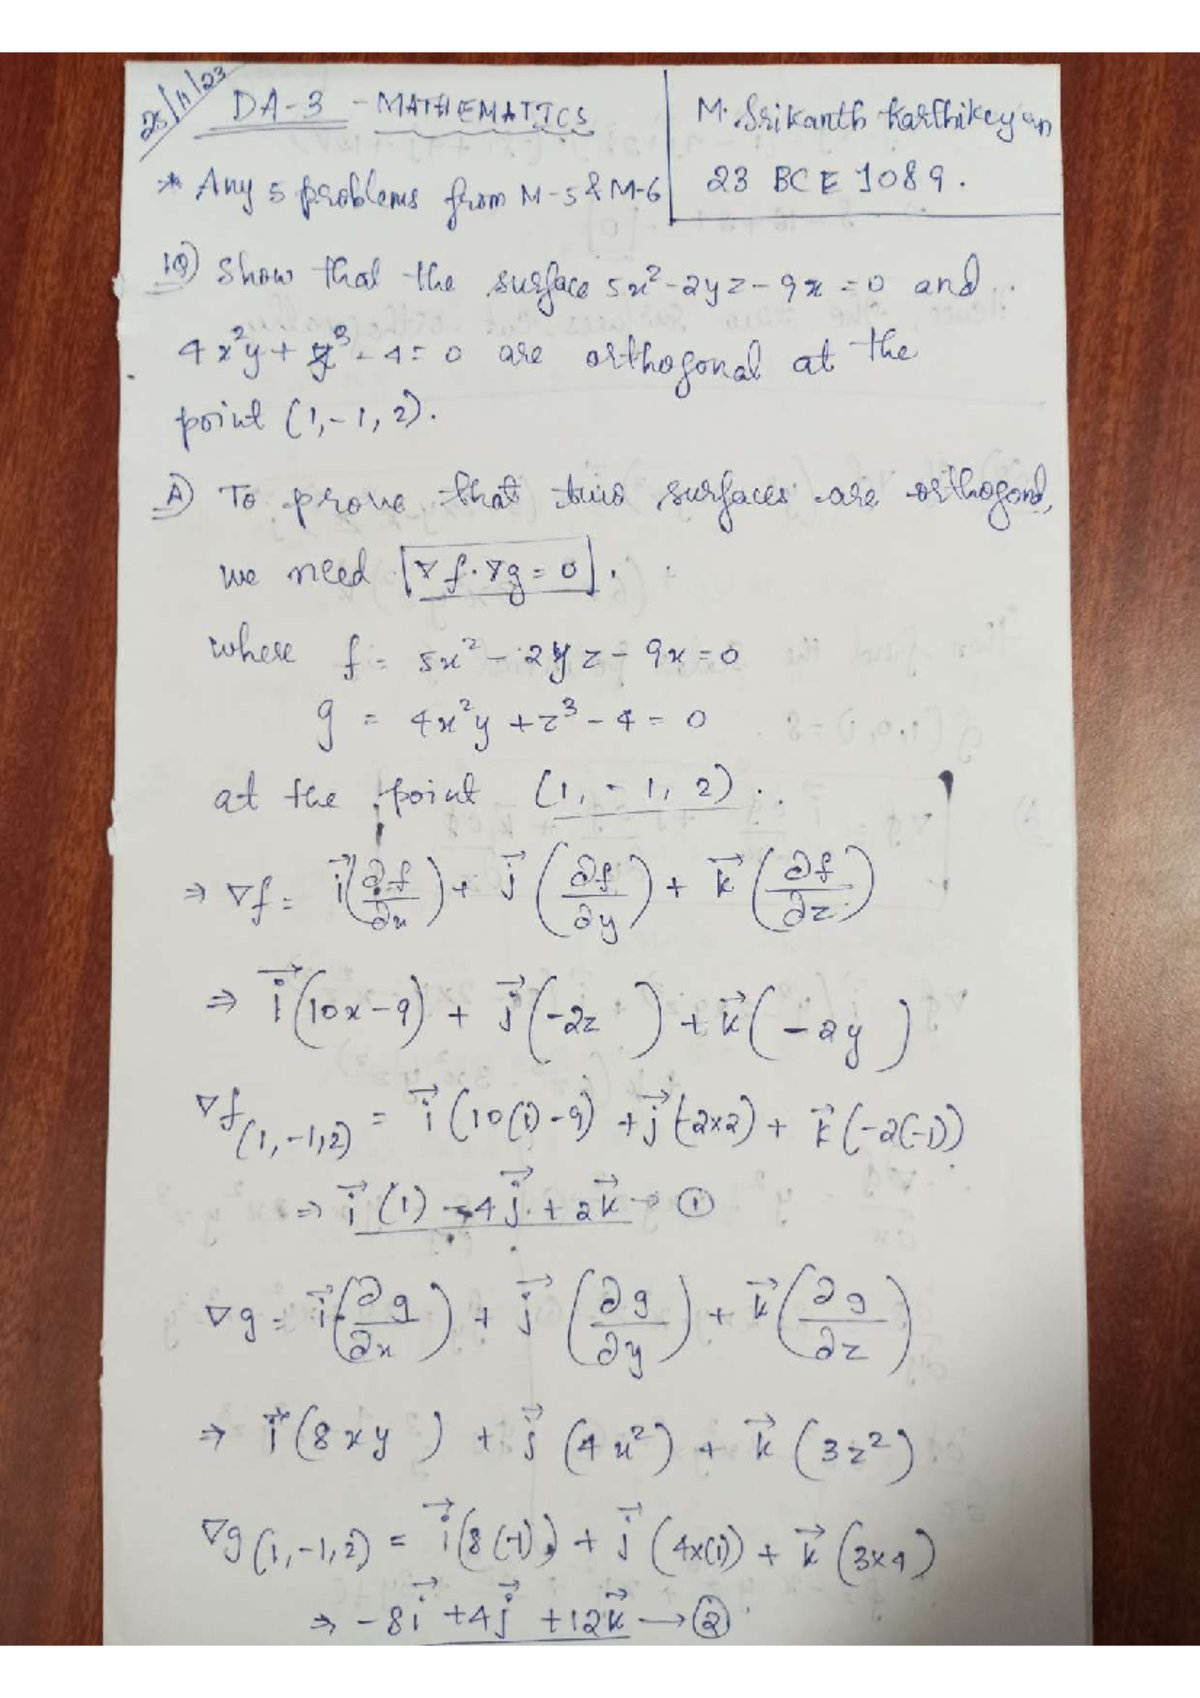 25/11/23
DA-3 - MATHEMATICS
M. Srikanth Karthikeyan
23 BCE 1089.
* Any 5 problems from M-5 & M-6
1Q) Show that the surface 5x² - 2yz - 9x = 0 and
4x²y + z³ - 4 = 0 are orthogonal at the
point (1, -1, 2).
A) To prove that two surfaces are orthogonal,
we need ∇f · ∇g = 0.
where f = 5x² - 2yz - 9x = 0
g = 4x²y + z³ - 4 = 0
at the point (1, -1, 2).
⇒ ∇f = i⃗(∂f/∂x) + j⃗(∂f/∂y) + k⃗(∂f/∂z)
⇒ i⃗(10x-9) + j⃗(-2z) + k⃗(-2y)
∇f(1,-1,2) = i⃗(10(1)-9) + j⃗(-2x2) + k⃗(-2(-1))
⇒ i⃗(1) - 4j⃗ + 2k⃗ → ①
∇g = i⃗(∂g/∂x) + j⃗(∂g/∂y) + k⃗(∂g/∂z)
⇒ i⃗(8xy) + j⃗(4x²) + k⃗(3z²)
∇g(1,-1,2) = i⃗(8(-1)) + j⃗(4x(1)) + k⃗(3x4)
⇒ -8i⃗ + 4j⃗ + 12k⃗ → ②